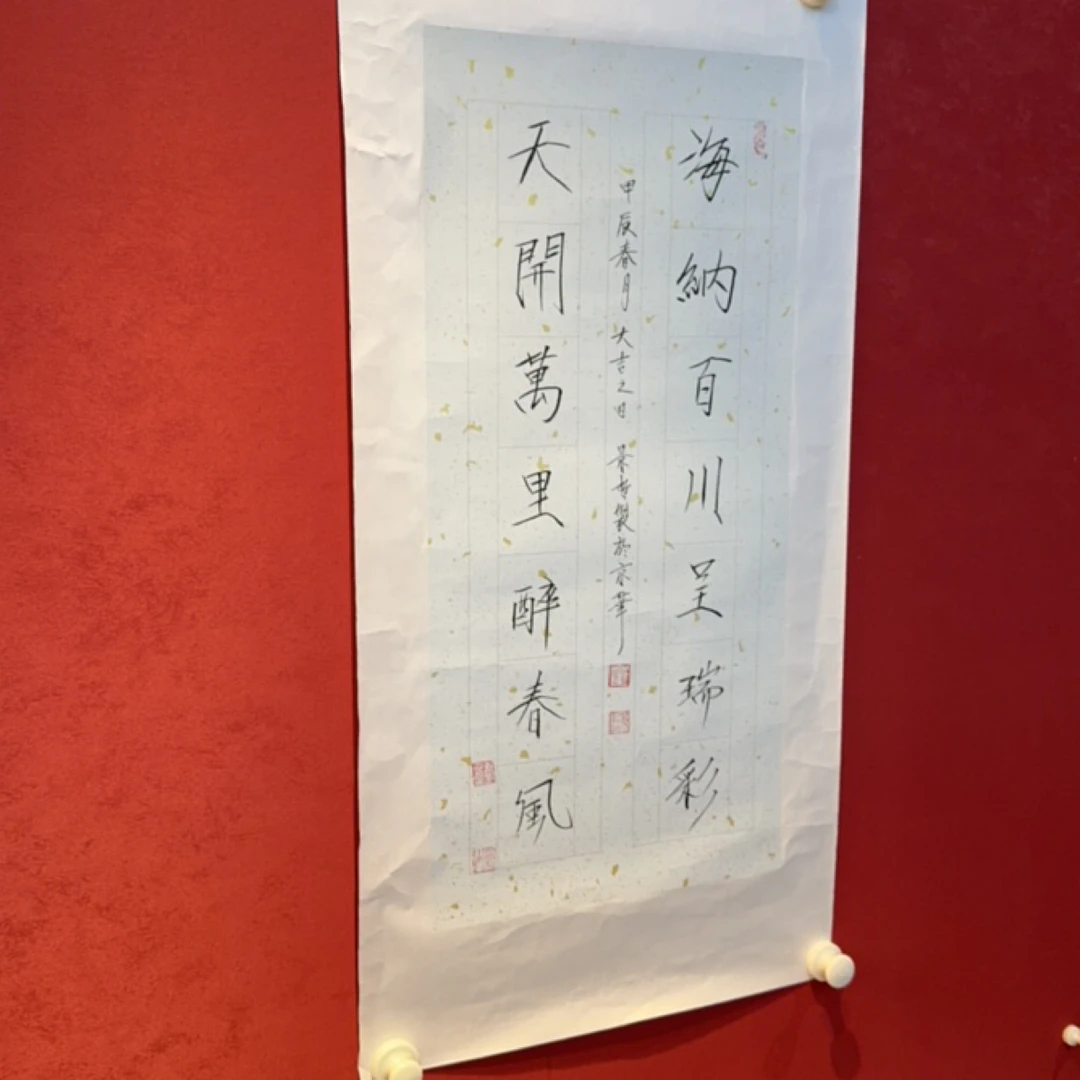 海納百川呈瑞彩
甲辰春月大吉之日 景
製於京華
天開萬里醉春風